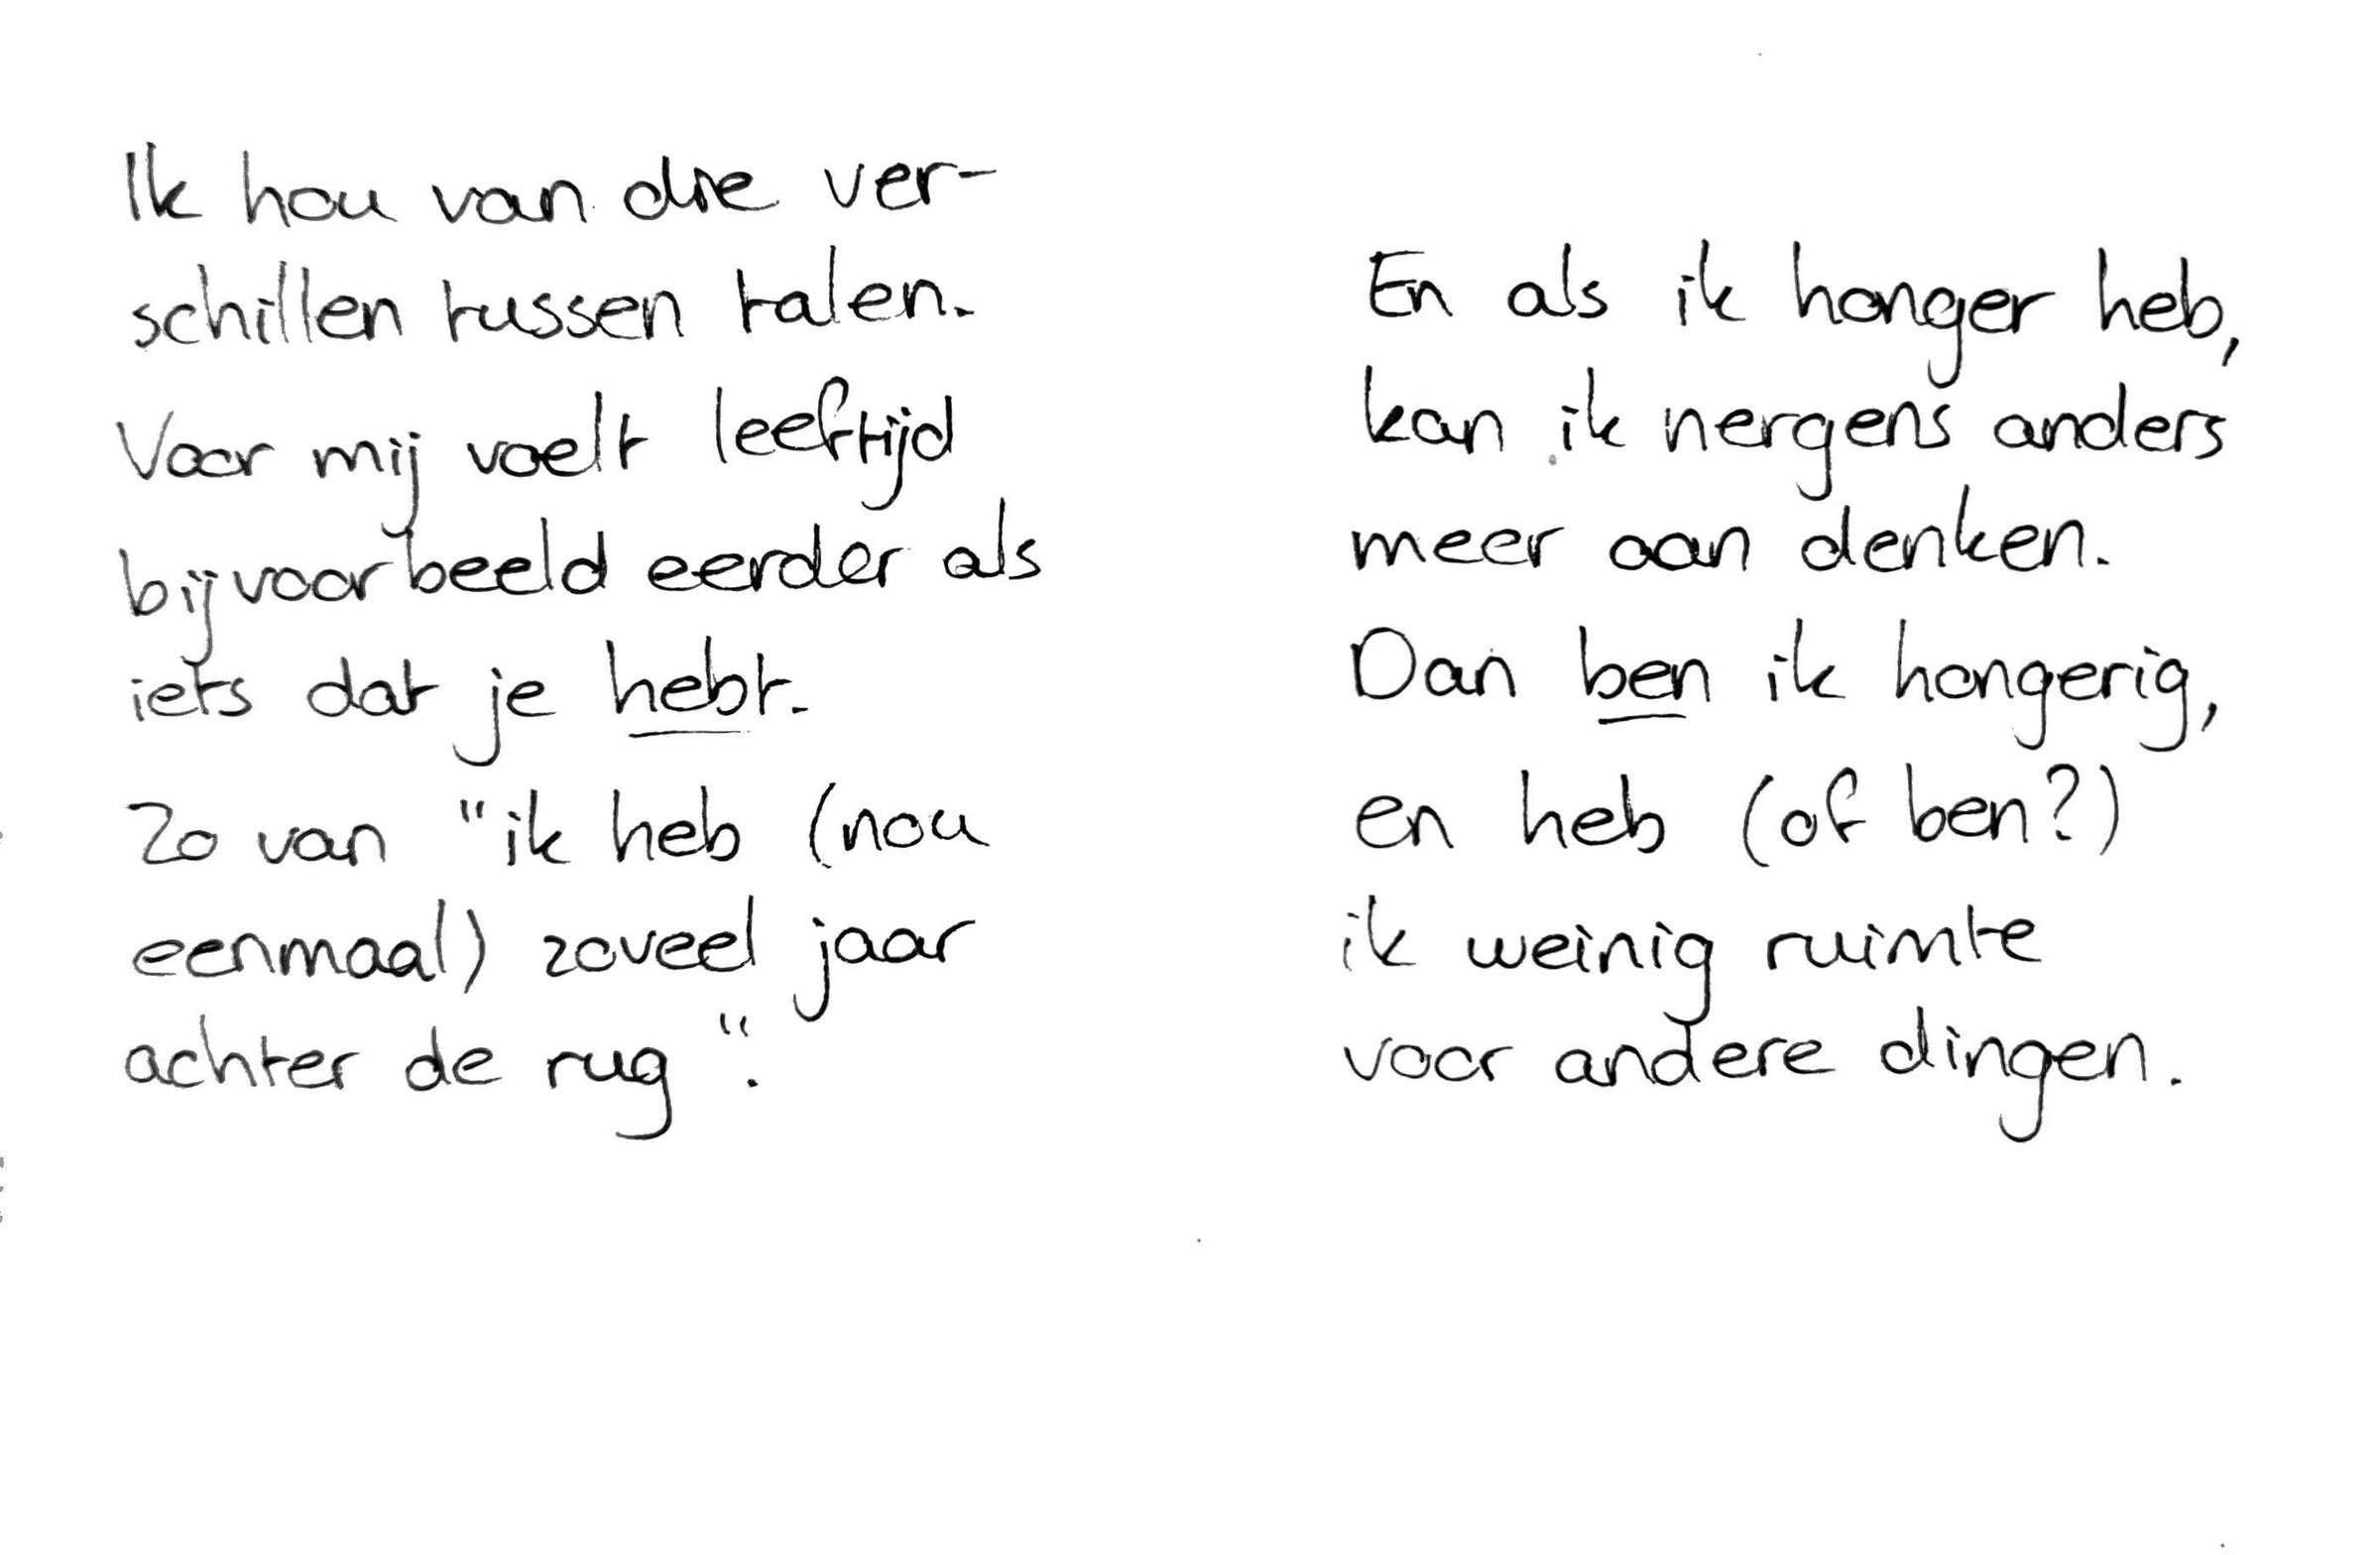 Ik hou van die ver-
schillen tussen talen.
Voor mij voelt leeftijd
bijvoorbeeld eerder als
iets dat je hebt.
Zo van "ik heb (nou
eenmaal) zoveel jaar
achter de rug".
En als ik honger heb,
kan ik nergens anders
meer aan denken.
Dan ben ik hongerig,
en heb (of ben?)
ik weinig ruimte
voor andere dingen.